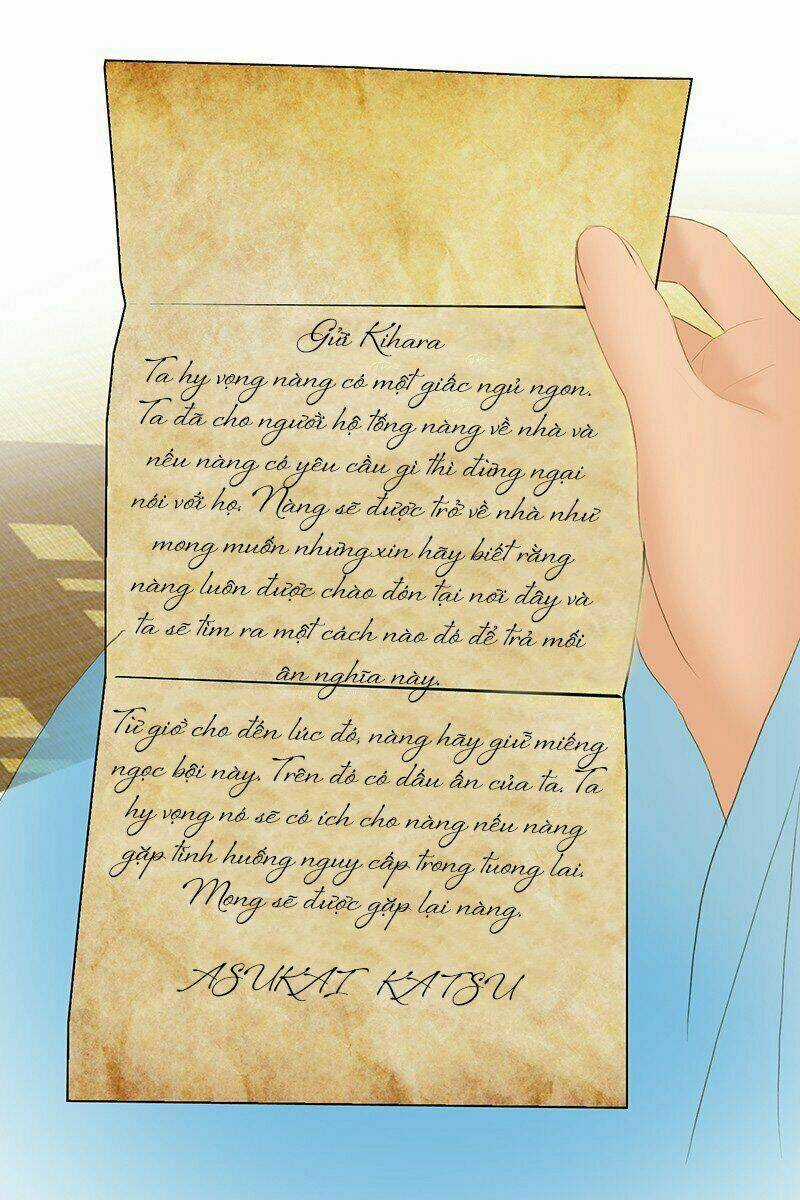 Gửi Kihara
Ta hy vọng nàng có một giấc ngủ ngon.
Ta đã cho người hộ tống nàng về nhà và
nếu nàng có yêu cầu gì thì đừng ngại
nói với họ. Nàng sẽ được trở về nhà như
mong muốn nhưng xin hãy biết rằng
nàng luôn được chào đón tại nơi đây và
ta sẽ tìm ra một cách nào đó để trả mối
ân nghĩa này.
Từ giờ cho đến lúc đó, nàng hãy giữ miếng
ngọc bội này. Trên đó có dấu ấn của ta. Ta
hy vọng nó sẽ có ích cho nàng nếu nàng
gặp tình huống nguy cấp trong tuong lai.
Mong sẽ được gặp lại nàng.
ASUKAI KATSU